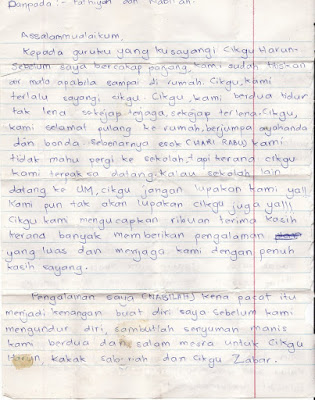 Daripada :- Fathiyah dan Nabilah.
Assalammualaikum,
Kepada guruku yang kusayangi Cikgu Harun.
Sebelum saya bercakap panjang, kami sudah titiskan
air mata apabila sampai di rumah. Cikgu, kami
terlalu sayangi cikgu. Cikgu, kami berdua tidur
tak lena sekejap terjaga, sekejap terlena. Cikgu,
kami selamat pulang ke rumah, berjumpa ayahanda
dan bonda. Sebenarnya esok (HARI RABU) kami
tidak mahu pergi ke sekolah, tapi kerana cikgu
kami terpaksa datang. Kalau sekolah lain
datang ke UM, cikgu jangan lupakan kami ya!!
Kami pun tak akan lupakan cikgu juga ya!!!
Cikgu kami mengucapkan ribuan terima kasih
kerana banyak memberikan pengalaman
yang luas dan menjaga kami dengan penuh
kasih sayang.
Pengalaman saya (NABILAH) kena pacat itu
menjadi kenangan buat diri saya. Sebelum kami
mengundur diri, sambutlah senyuman manis
kami berdua dan salam mesra untuk Cikgu
Harun, kakak sabariah dan Cikgu Zahar.